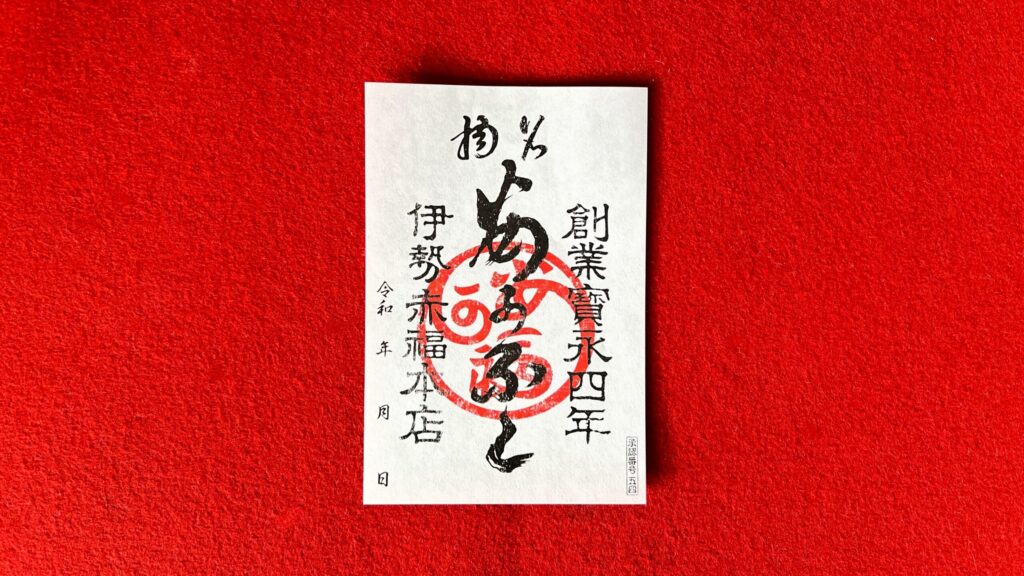 名物
創業寶永四年
あかふく
伊勢赤福本店
令和 年 月 日
承認番号